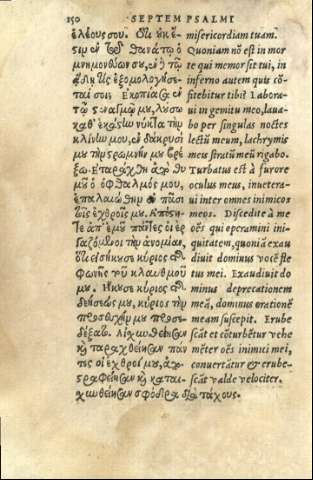 150 SEPTEM PSALMI
ἐλέους σου. Ὅτι οὐκ ἔ-
στιν ἐν τῷ θανάτῳ ὁ
μνημονεύων σου, ἐν δὲ τῷ
ᾅδῃ τίς ἐξομολογήσε-
ταί σοι; Ἐκοπίασα ἐν
τῷ στεναγμῷ μου, λούσω
καθ' ἑκάστην νύκτα τὴν
κλίνην μου, ἐν δάκρυσί
μου τὴν στρωμνήν μου βρέ
ξω. Ἐταράχθη ἀπὸ θυ
μοῦ ὁ ὀφθαλμός μου,
ἐπαλαιώθην ἐν πᾶσι
τοῖς ἐχθροῖς μου. Ἀπόστη-
τε ἀπ' ἐμοῦ πάντες οἱ ἐρ
γαζόμενοι τὴν ἀνομίαν,
ὅτι εἰσήκουσε κύριος τῆς
φωνῆς τοῦ κλαυθμοῦ
μου. Ἤκουσε κύριος τῆς
δεήσεώς μου, κύριος τὴν
προσευχήν μου προσε-
δέξατο. Αἰσχυνθείησαν
καὶ ταραχθείησαν πάν
τες οἱ ἐχθροί μου, ἀπο-
στραφείησαν καὶ καται-
σχυνθείησαν σφόδρα διὰ τάχους.
misericordiam tuam.
Quoniam nō est in mor
te qui memor sit tui, in
inferno autem quis cō-
fitebitur tibi? Labora-
ui in gemitu meo, laua-
bo per singulas noctes
lectū meum, lachrymis
meis stratū meū rigabo.
Turbatus est à furore
oculus meus, inuetera-
ui inter omnes inimicos
meos. Discedite à me
oēs qui operamini ini-
quitatem, quoniā exau
diuit dominus vocē fle
tus mei. Exaudiuit do
minus deprecationem
meā, dominus orationē
meam suscepit. Erube
scāt et cōturbētur vehe
mēter oēs inimici mei,
conuertātur & erube-
scāt valde velociter.